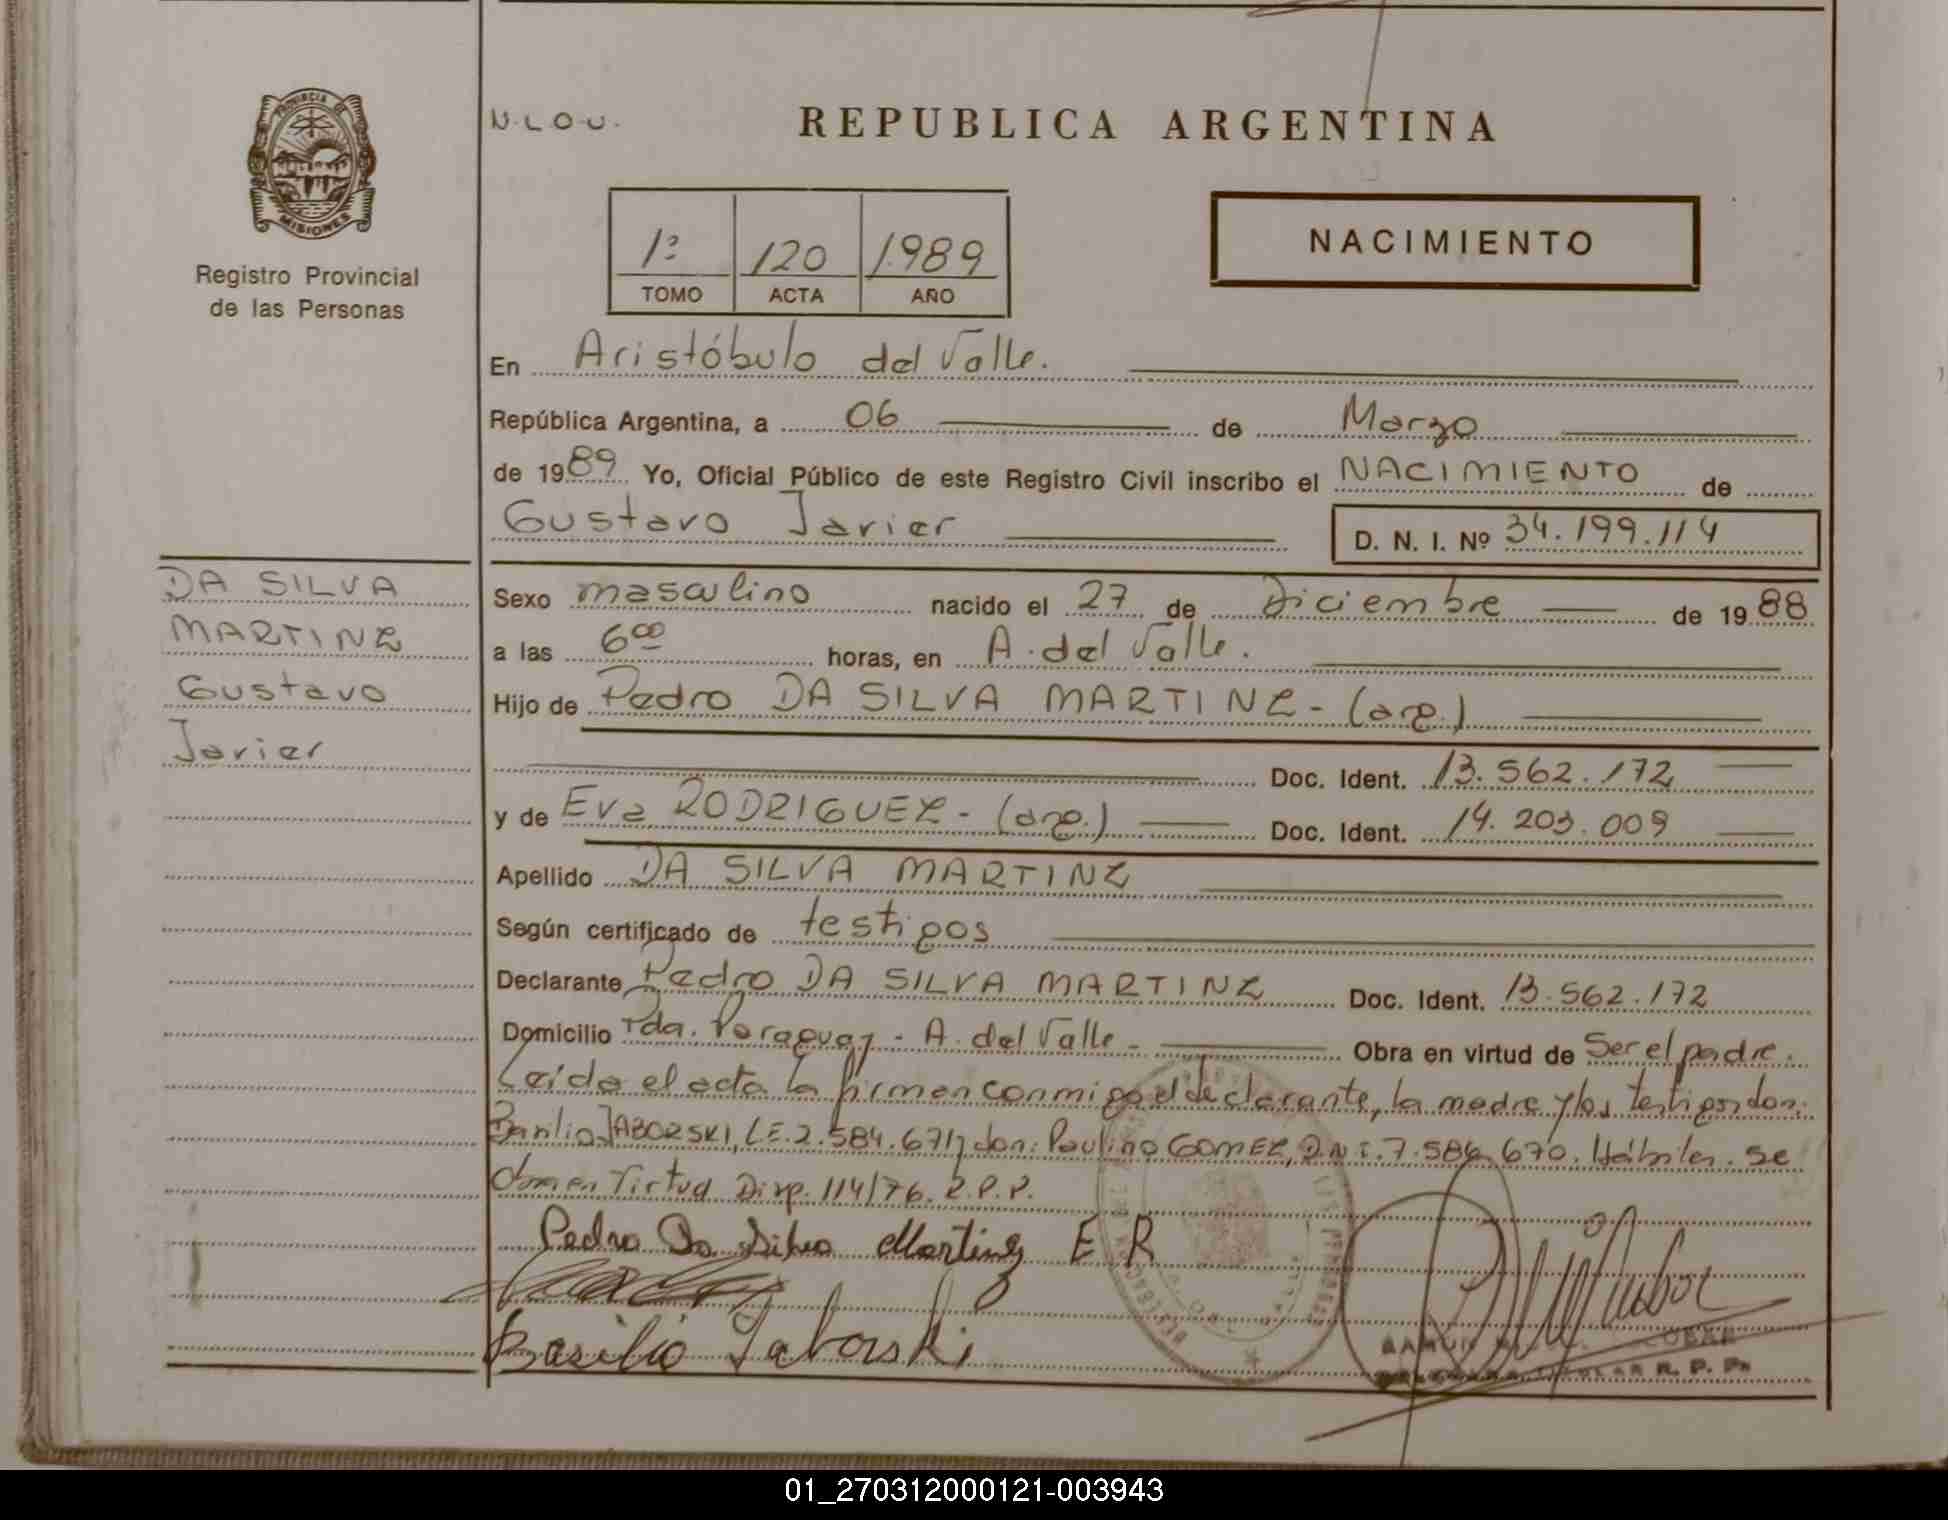 PROVINCIA DE
MISIONES
Registro Provincial
de las Personas
N.L.O.U.
REPUBLICA ARGENTINA
1º 120 1.989
TOMO ACTA AÑO
NACIMIENTO
En Aristóbulo del Valle.
República Argentina, a 06 de Marzo
de 1989 Yo, Oficial Público de este Registro Civil inscribo el NACIMIENTO de
Gustavo Javier D. N. I. Nº 34.199.114
DA SILVA
MARTINZ
Gustavo
Javier
Sexo masculino nacido el 27 de Diciembre de 1988
a las 600 horas, en A. del Valle.
Hijo de Pedro DA SILVA MARTINZ - (arg.)
Doc. Ident. 13.562.172
y de Eva RODRIGUEZ - (arg.) Doc. Ident. 14.203.009
Apellido DA SILVA MARTINZ
Según certificado de testigos
Declarante Pedro DA SILVA MARTINZ Doc. Ident. 13.562.172
Domicilio Pda. Paraguay - A. del Valle - Obra en virtud de Ser el padre.
Leída el acta la firman conmigo el declarante, la madre y los testigos don:
Basilio JABORSKI, L.E. 2.584.671 y don: Paulino GOMEZ, D.N.I. 7.584.670. Hábiles. Se
en Virtud Disp. 114/76. R.P.P.
Pedro Da Silva Martinz E R
Basilio Jaborski
R. P. P.
01_270312000121-003943